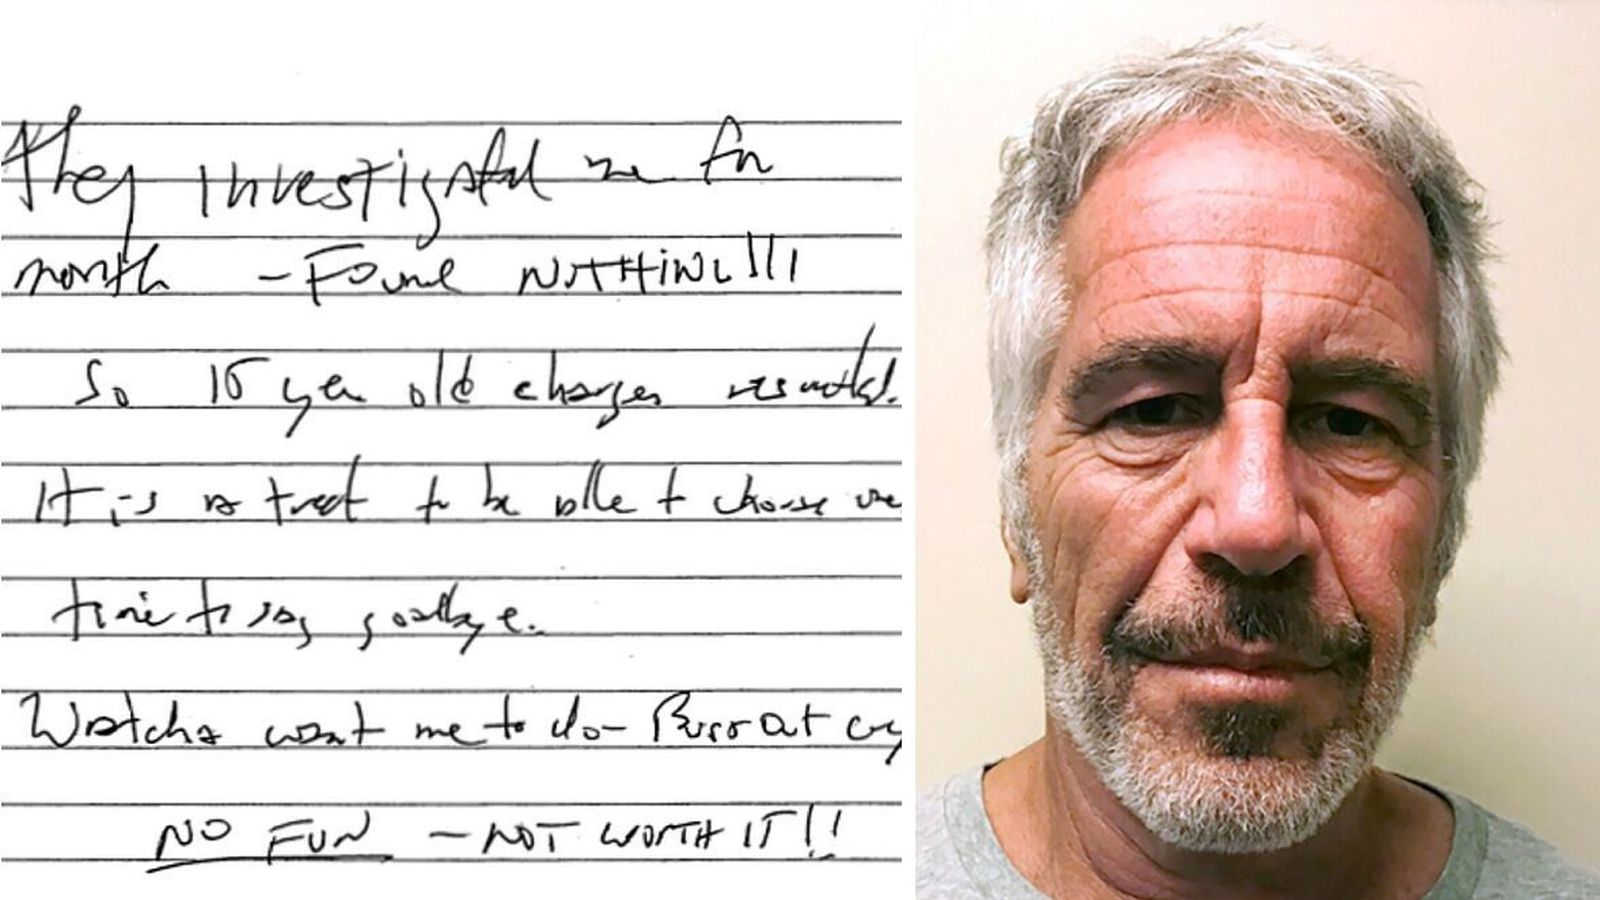 they investigated me for
month - Found NOTHING!!!
So 15 year old charges resulted.
It is a treat to be able to choose
time to say goodbye.
Watcha want me to do - Burst out cry
NO FUN - NOT WORTH IT!!